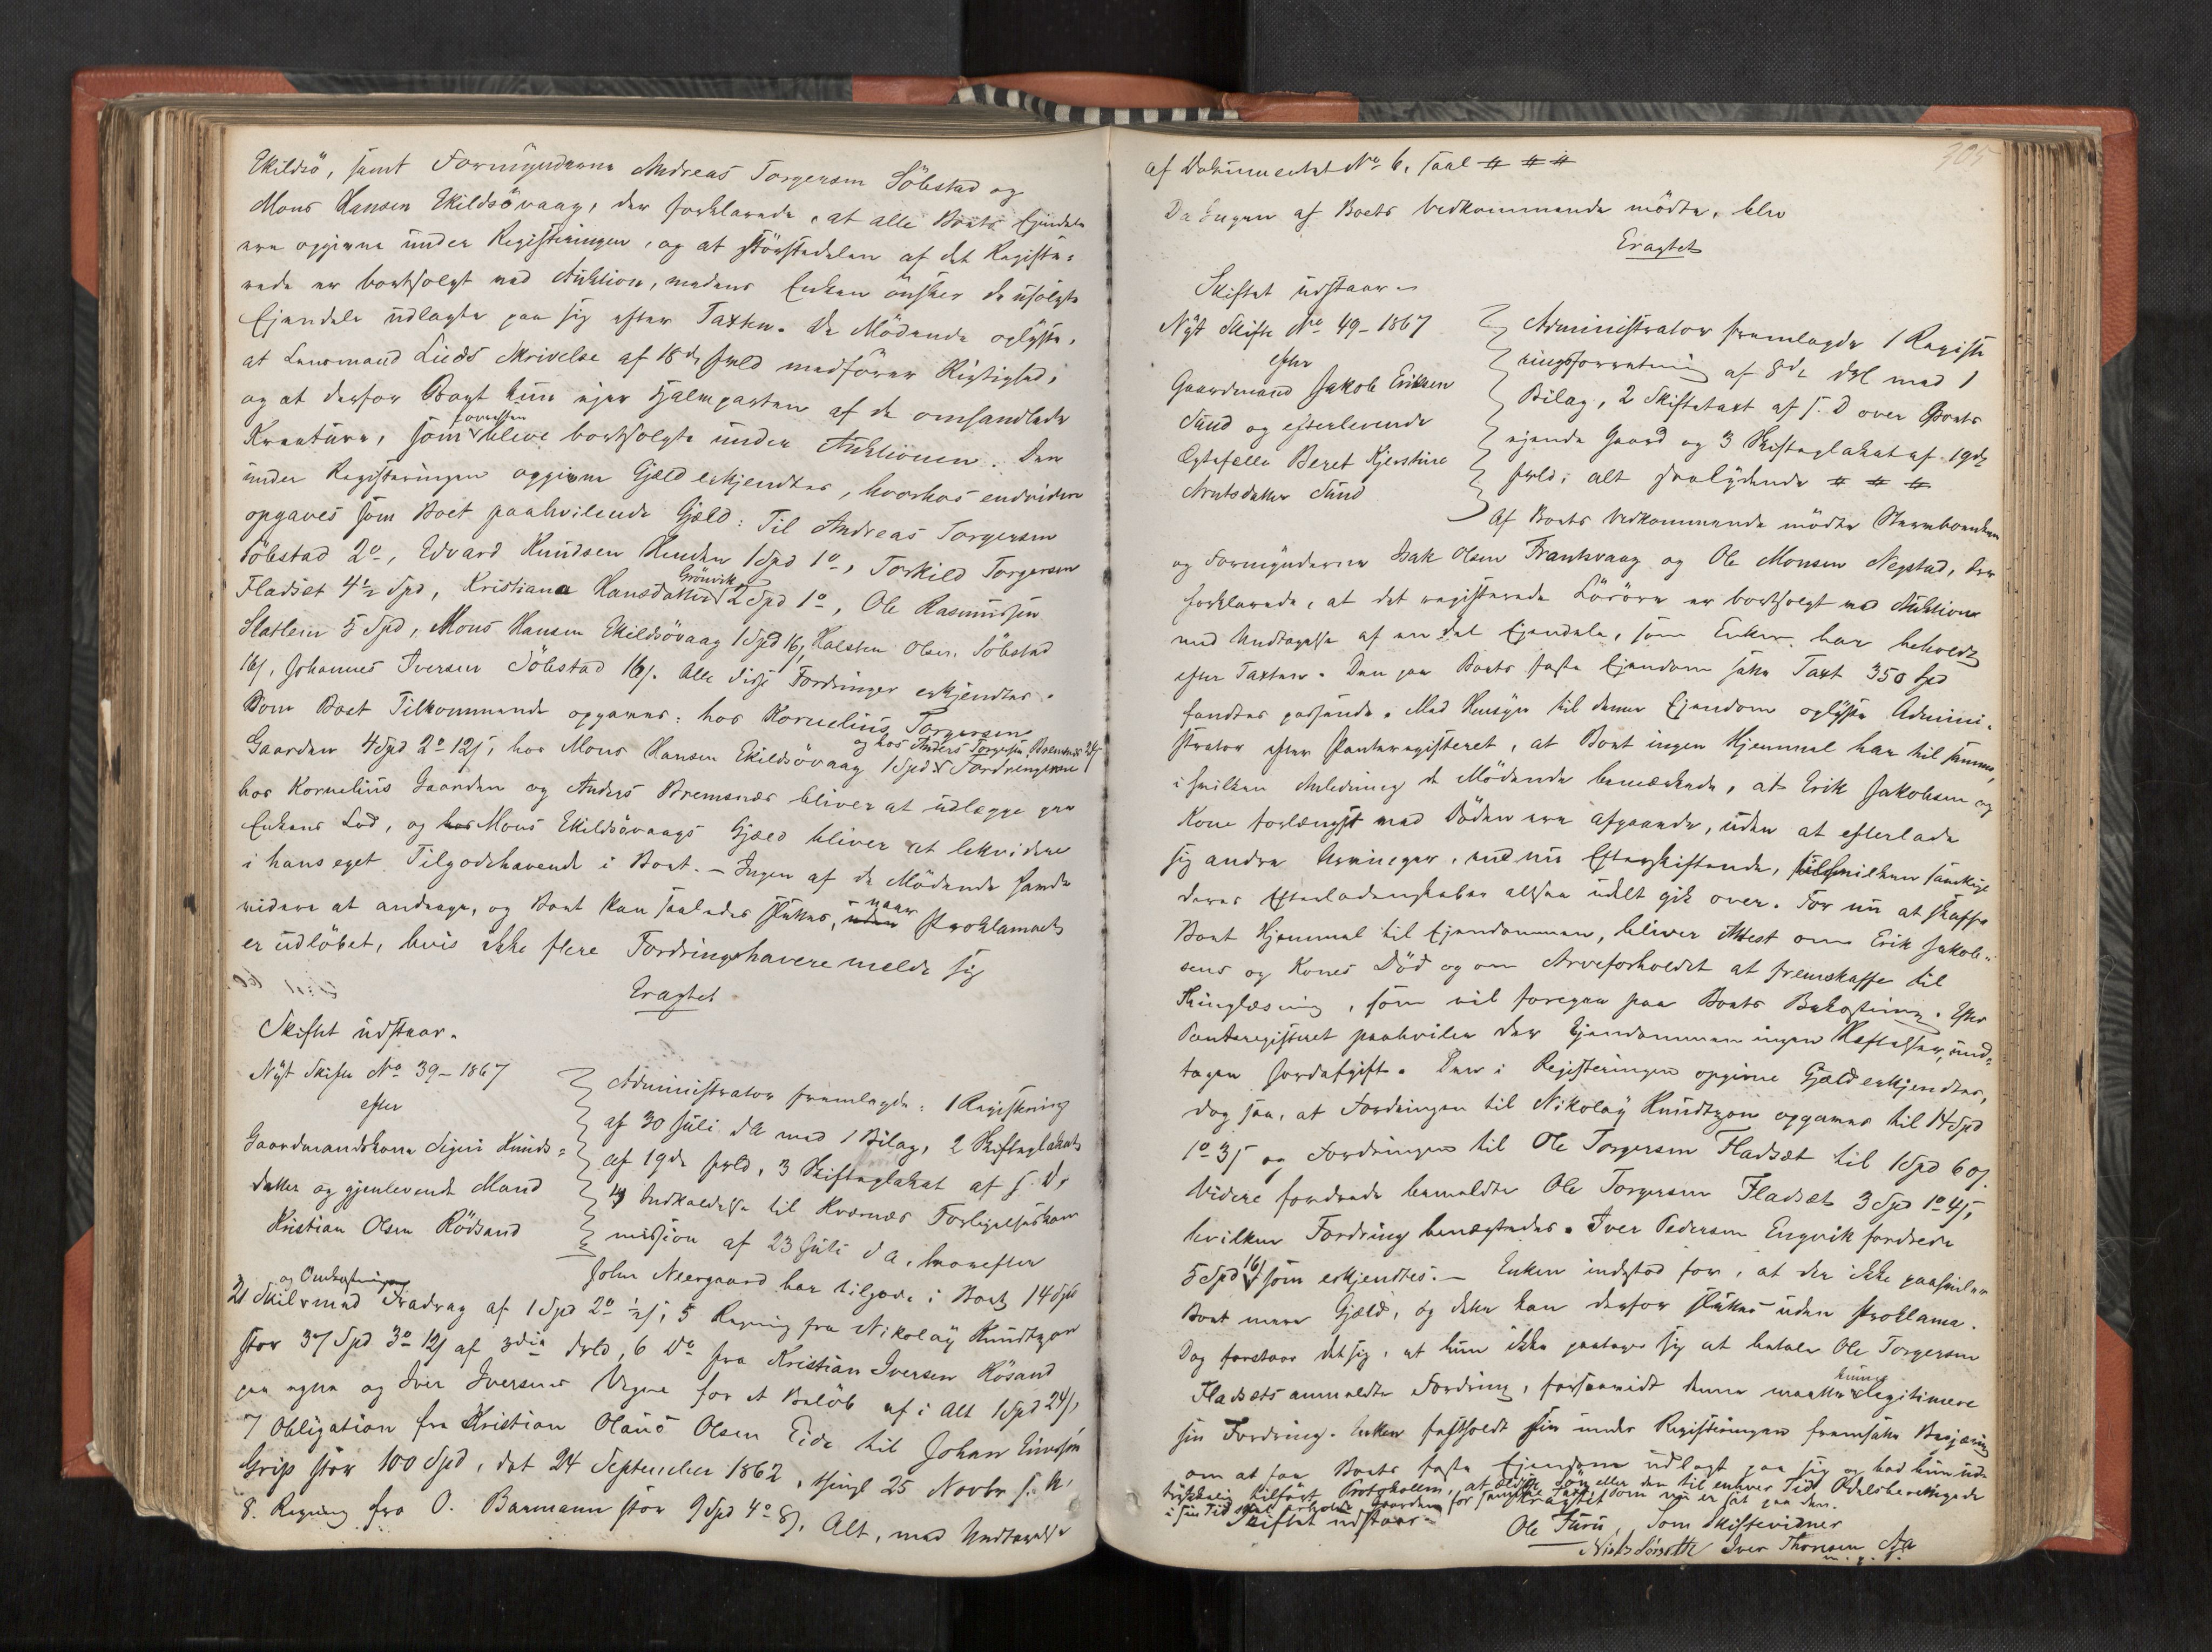 Ekildsö, samt Formynderne Andreas Torgersen Söbstad og
Mons Hansen Ekildsövaag, der forklarede, at alle Boets Ejendele
ere opgivne under Registeringen, og at störstedelen af det Registe-
rede er bortsolgt ved Auktion, medens Enken önsker de usolgte
Ejendele udlagte paa sig efter Taxten. De Mödende oplyste,
at Lensmand Lieds Skrivelse af 18de ds medförer Rigtighed,
og at derfor Boet kun ejer Halvparten af de omhandlede
Kreature, som bleve bortsolgte under Auktionen. Den
under Registeringen opgivne Gjæld erkjendtes, hvorhos endvidere
opgaves som Boet paahvilende Gjæld: Til Andreas Torgersen
Söbstad 2o, Edvard Knudsen Henden 1 Spd 1o, Torkild Torgersen
Fladset 4½ Spd, Kristiana Hansdatter Grönvik 2 Spd 1o, Ole Rasmussen
Slatlem 5 Spd, Mons Hansen Ekildsövaag 1 Spd 16 s, Halsten Olsen Söbstad
16 s, Johannes Iversen Söbstad 16 s. Alle disse Fordringer erkjendtes.
Som Boet Tilkommende opgaves: hos Kornelius Torgersen
Gaarden 4 Spd 2o 12 s, hos Mons Hansen Ekildsövaag 1 Spd og hos Anders Torgersen Bremsnes 24 s. Fordringerne
hos Kornelius Gaarden og Anders Bremsnes bliver at udlægge paa
Enkens Lod, og hos Mons Ekildsövaags Gjæld bliver at likvidere
i hans eget Tilgodehavende i Boet. – Ingen af de Mödende havde
videre at andrage, og Boet kan saaledes sluttes, uden naar Proklamaet
er udlöbet, hvis ikke flere Fordringshavere melde sig
Eragtet
Skiftet udstaar.
Nyt Skifte No 39 – 1867
efter
Gaardmandskone Sigri Knuds-
datter og gjenlevende Mand
Kristian Olsen Rödsand
Administrator fremlagde: 1 Registering
af 30 Juli d A med 1 Bilag, 2 Skifteplakat
af 19de ds, 3 Skifteplakat af s. D,
4 Indkaldelse til Kværnes Forligelseskom
mission af 23 Juli d A, hvorefter
John Neergaard har tilgode i Boet 14 Spd
21 Skil og Omkostninger med Fradrag af 1 Spd 2o ½ s, 5 Regning fra Nikolay Knudtzon
stor 37 Spd 3o 12 s af 3die ds, 6 Do fra Kristian Iversen Rösand
paa egne og Iver Iversens Vegne for et Belöb af i Alt 1 Spd 24 s,
7 Obligation fra Kristian Olaus Olsen Eide til Johan
Grip stor 100 Spd, dat 24 September 1862, thingl 25 Novbr s. A,
8. Regning fra O. Barmann stor 9 Spd 4o 8 s, Alt, med Undtagelse
305
af Dokumentet No 6, saal # # #
Da Ingen af Boets Vedkommende mödte, blev
Eragtet
Skiftet udstaar.
Nyt Skifte No 49 – 1867
efter
Gaardmand Jakob Eriksen
Sund og efterlevende
Ægtefælle Beret Kjerstine
Arntsdatter Sund
Administrator fremlagde 1 Registe
ringsforretning af 8de ds med 1
Bilag, 2 Skiftetaxt af s. D over Boets
ejende Gaard og 3 Skifteplakat af 19de
ds; alt saalydende # # #
Af Boets Vedkommende mödte Stervboenken
og Formynderne Isak Olsen Frankvaag og Ole Monsen Negstad, der
forklarede, at det registerede Lösöre er bortsolgt ved Auktion
med Undtagelse af en Del Ejendele, som Enken har beholdt
efter Taxten. Den paa Boets faste Ejendom satte Taxt 350 Spd
fandtes passende. Med Hensyn til denne Ejendom oplyste Admini-
strator efter Panteregisteret, at Boet ingen Hjemmel har til samme,
i hvilken Anledning de Mödende bemærkede, at Erik Jakobsen og
Kone forlængst ved Döden ere afgaaede, uden at efterlade
sig andre Arvinger, end nu Efterskiftende, til hvilken samtlige
deres Efterladenskaber altsaa udelt gik over. For nu at skaffe
Boet Hjemmel til Ejendommen, bliver Attest om Erik Jakob-
sens og Kones Död og om Arveforholdet at fremskaffe til
Thinglæsning, som vil foregaa paa Boets Bekostning. Efter
Panteregisteret paahviler der Ejendommen ingen Heftelser, und-
tagen Jordafgift. Den i Registeringen opgivne Gjæld erkjendtes,
dog saa, at Fordringen til Nikolay Knudtzon opgaves til 14 Spd
1o 3 s og Fordringen til Ole Torgersen Fladset til 1 Spd 60 s.
Videre fordrede bemeldte Ole Torgersen Fladset 3 Spd 1o 4 s,
hvilken Fordring benægtedes. Iver Pedersen Engvik fordrede
5 Spd 16 s som erkjendtes. – Enken indestod for, at der ikke paahviler
Boet mere Gjæld, og dette kan derfor sluttes uden Proklama.
Dog forstaar det sig, at hun ikke paatager sig at betale Ole Torgersen
Fladsets anmeldte Fordring, forsaavidt denne maatte kunne legitimere
sin Fordring. Enken fastholdt sin under Registeringen fremsatte Begjæring
om at faa Boets faste Ejendom udlagt paa sig og bad hun ud-
trykkelig tilfört Protokollen, at ældste Sön eller den til enhver Tid Odelsberettigede
i sin Tid skal erholde Gaarden for samme Taxt, som nu er sat paa den.
Eragtet
Skiftet udstaar.
Ole Furu, Som Skiftevidner
Niels Iver Thoresen Aa
m. p. P.